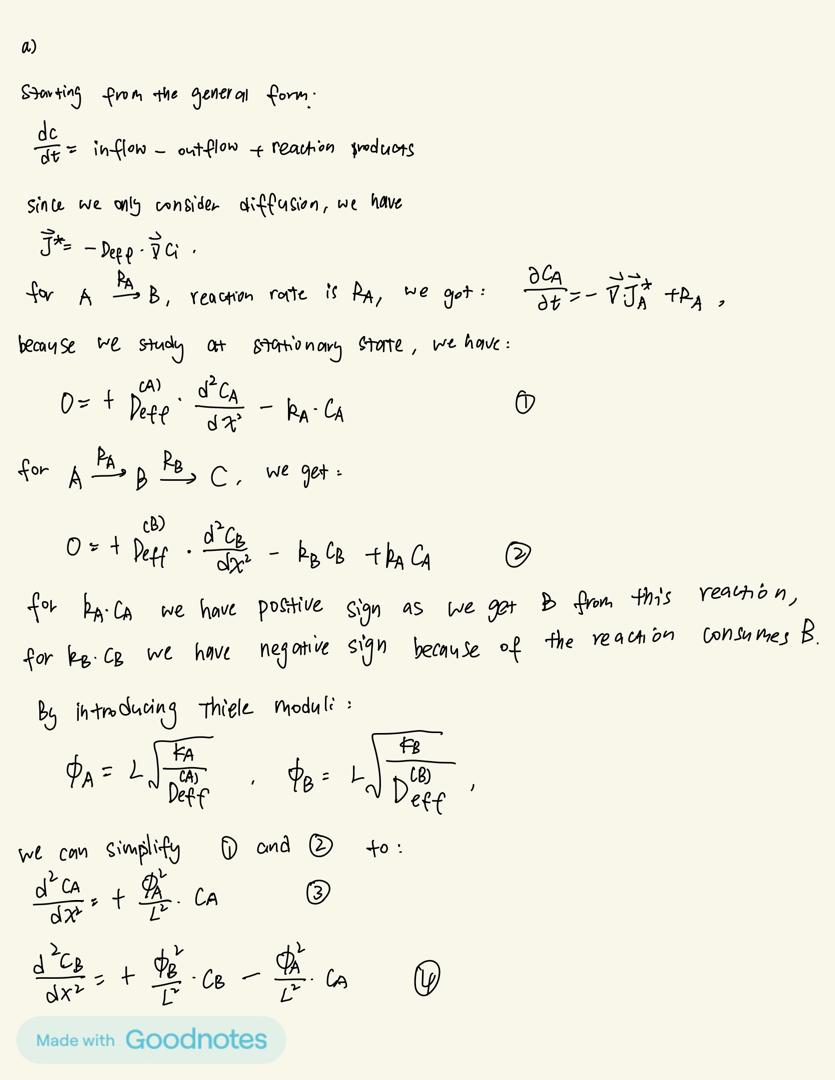 a)
Starting from the general form:
dc/dt = inflow - outflow + reaction products
since we only consider diffusion, we have
J⃗* = - Deff · ∇⃗ Ci .
for A —RA→ B, reaction rate is RA, we got : ∂CA/∂t = - ∇⃗·J⃗A* + RA ,
because we study at stationary state, we have:
0 = + Deff(A) · d²CA/dx² - kA · CA ①
for A —RA→ B —RB→ C, we get :
0 = + Deff(B) · d²CB/dx² - kB CB + kA CA ②
for kA·CA we have positive sign as we get B from this reaction,
for kB·CB we have negative sign because of the reaction consumes B.
By introducing Thiele moduli :
ϕA = L√(kA/Deff(A)) , ϕB = L√(kB/Deff(B)) ,
we can simplify ① and ② to :
d²CA/dx² = + ϕA²/L² · CA ③
d²CB/dx² = + ϕB²/L² · CB - ϕA²/L² · CA ④
Made with Goodnotes